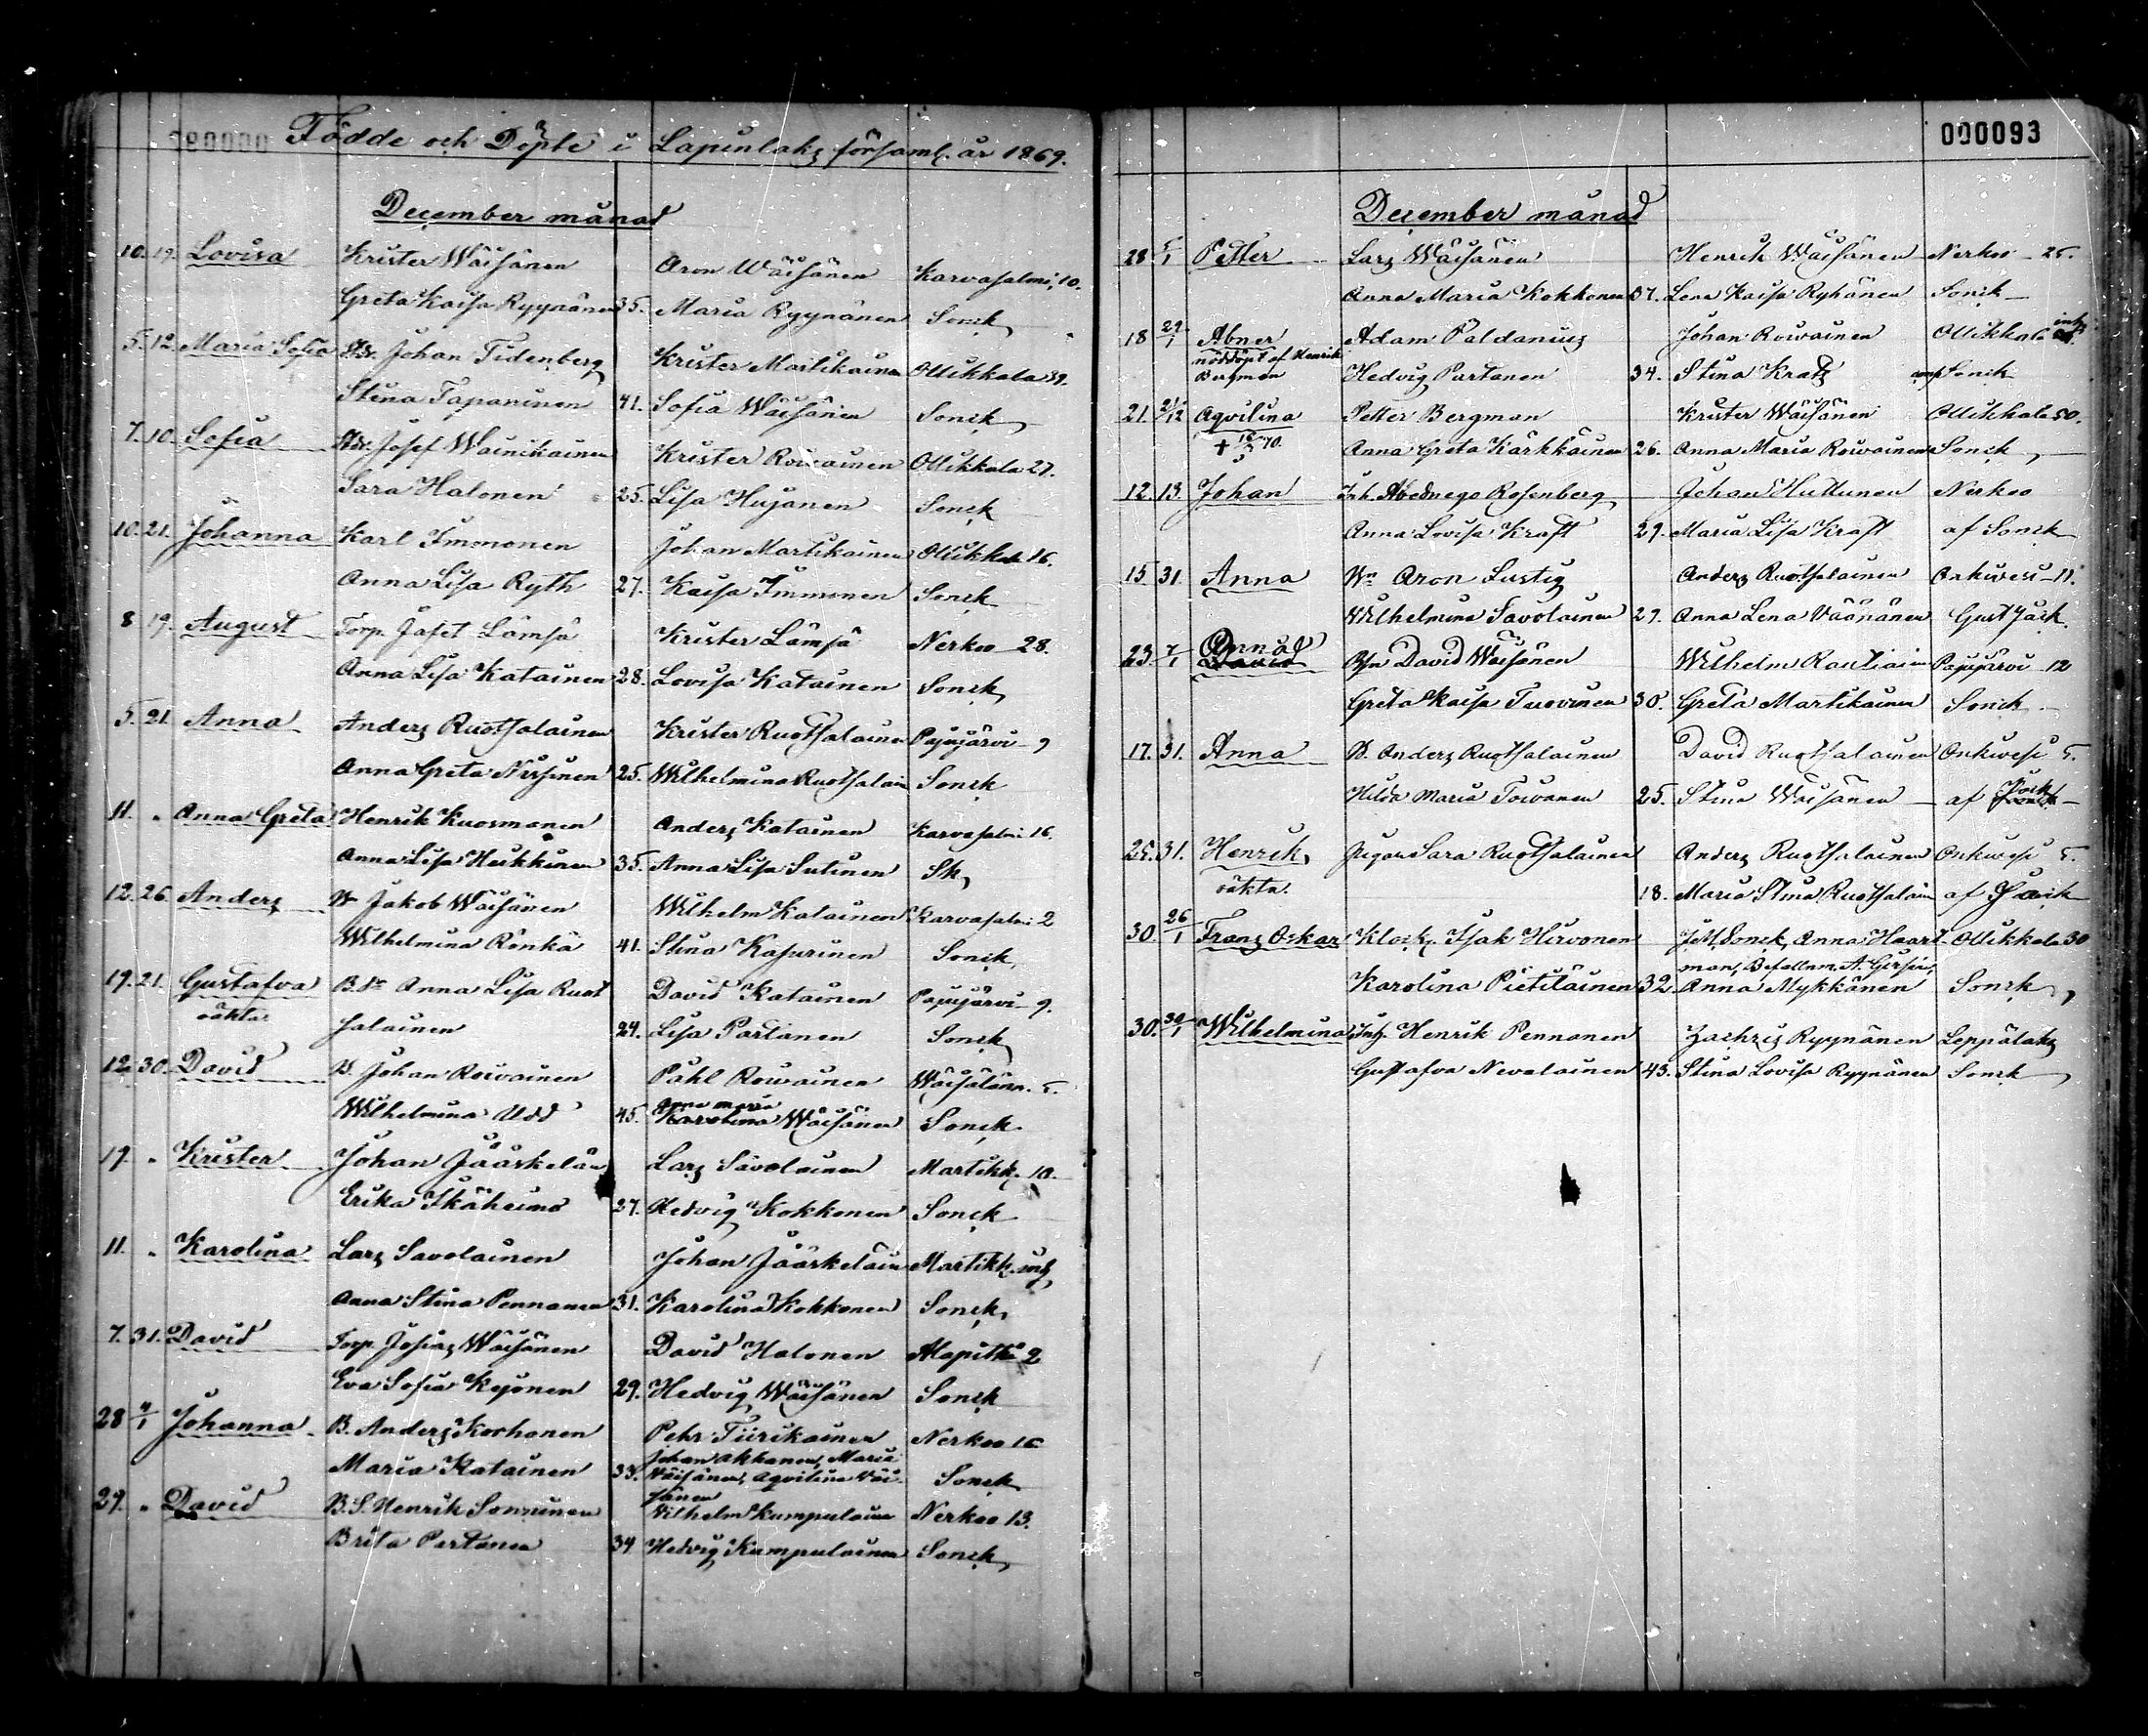 Födde och Döpte i Lapinlaks församl. år 1869.
December månad
10. 19. Lovisa Krister Wäisänen Aron Wäisänen Karvasalmi, 10.
Greta Kaisa Ryynänen 35. Maria Ryynänen Sonck
5. 12. Maria Sofia Johan Tidenberg Krister Martikainen Ollikkala 39.
Stina Tapaninen 41. Sofia Wäisänen Sonck
7. 10. Sofia Josef Wainikainen Krister Roivainen Ollikkala 27.
Sara Halonen 25. Lisa Hujanen Sonck
10. 21. Johanna Karl Immonen Johan Martikainen Ollikkala 16.
Anna Lisa Ryth 27. Kaisa Immonen Sonck
8 19. August Torp. Jafet Lämsä Krister Lämsä Nerkoo 28.
Anna Lisa Katainen 28. Lovisa Katainen Sonck
5. 21. Anna Anders Ruotsalainen Krister Ruotsalainen Pajujärvi 9
Anna Greta Nissinen 25. Wilhelmina Ruotsalain Sonck
11. " Anna Greta Henrik Kuosmanen Anders Katainen Karvasalmi 16.
Anna Lisa Heikkinen 35. Anna Lisa Sutinen Sk
12. 26. Anders Jakob Wäisänen Wilhelm Katainen Karvasalmi 2
Wilhelmina Rönkä 41. Stina Kasurinen Sonck
19. 21. Gustafva B.Dr Anna Lisa Ruot David Katainen Pajujärvi 9.
oäkta salainen 24. Lisa Partanen Sonck
12 30. David B. Johan Roivainen Påhl Roivainen Wäisälänm. 5.
Anna Maria
Wilhelmina Udd 45. Karolina Wäisänen Sonck
19. " Krister Johan Jääskeläin Lars Savolainen Martikk. 10.
Erika Ikäheimo 27. Hedvig Kokkonen Sonck
11. " Karolina Lars Savolainen Johan Jääskeläin Martikk. inh
Anna Stina Pennanen 31. Karolina Kokkonen Sonck
7. 31. David Torp. Josias Wäisänen David Halonen Alapitkä 2
Eva Sofia Kejonen 29. Hedvig Wäisänen Sonck
28 4/1 Johanna B. Anders Korhonen Pehr Tiirikainen Nerkoo 16
Johan Akkanen, Maria
Maria Katainen 33. Väisänen, Aqvilina Väi- Sonck
sänen
29. " David B.S. Henrik Sonninen Vilhelm Kumpulainen Nerkoo 13.
Brita Partanen 34 Hedvig Kumpulainen Sonck
000093
December månad
28 5/1 Petter Lars Wäisänen Henrik Wäisänen Nerkoo 25.
Anna Maria Kokkonen 37. Lena Kaisa Ryhänen Sonck
18 29/1 Abner Adam Paldanius Johan Roivainen Ollikkala inh
nöddöpt af Henrik
Bergman Hedvig Partanen 34. Stina Kratz Sonck
21. 21/12 Aqvilina Petter Bergman Krister Wäisänen Ollikkala 50.
Anna Greta Kärkkäinen 26. Anna Maria Roivainen Sonck
12. 13. Johan Inh. Abednego Rosenberg Johan Huttunen Nerkoo
Anna Lovisa Kraft 29. Maria Lisa Kraft af Sonck
15. 31. Anna Aron Lustig Anders Ruotsalainen Onkivesi 11.
Wilhelmina Savolainen 27. Anna Lena Väänänen Gust Jack.
23. 7/1 Anna
David David Wäisänen Wilhelm Rautiain Pajujärvi 12
Greta Kaisa Tuovinen 30. Greta Martikainen Sonck
17. 31. Anna B. Anders Ruotsalainen David Ruotsalainen Onkivesi 5.
Hilda Maria Toivanen 25. Stina Wäisänen af
25. 31. Henrik Pigan Sara Ruotsalainen Anders Ruotsalainen Onkivesi 5.
oäkta. 18. Maria Stina Ruotsalain af
30. 26/1 Frans Oskar Klock. Isak Hirvonen J.M. Sonck, Anna Haart- Ollikkala 30
man, Befallnm. A. Girsen,
Karolina Pietiläinen 32. Anna Mykkänen Sonck
30. 30/1 Wilhelmina Inh. Henrik Pennanen Zachris Ryynänen Leppälaks
Gustafva Nevalainen 43. Stina Lovisa Ryynänen Sonck